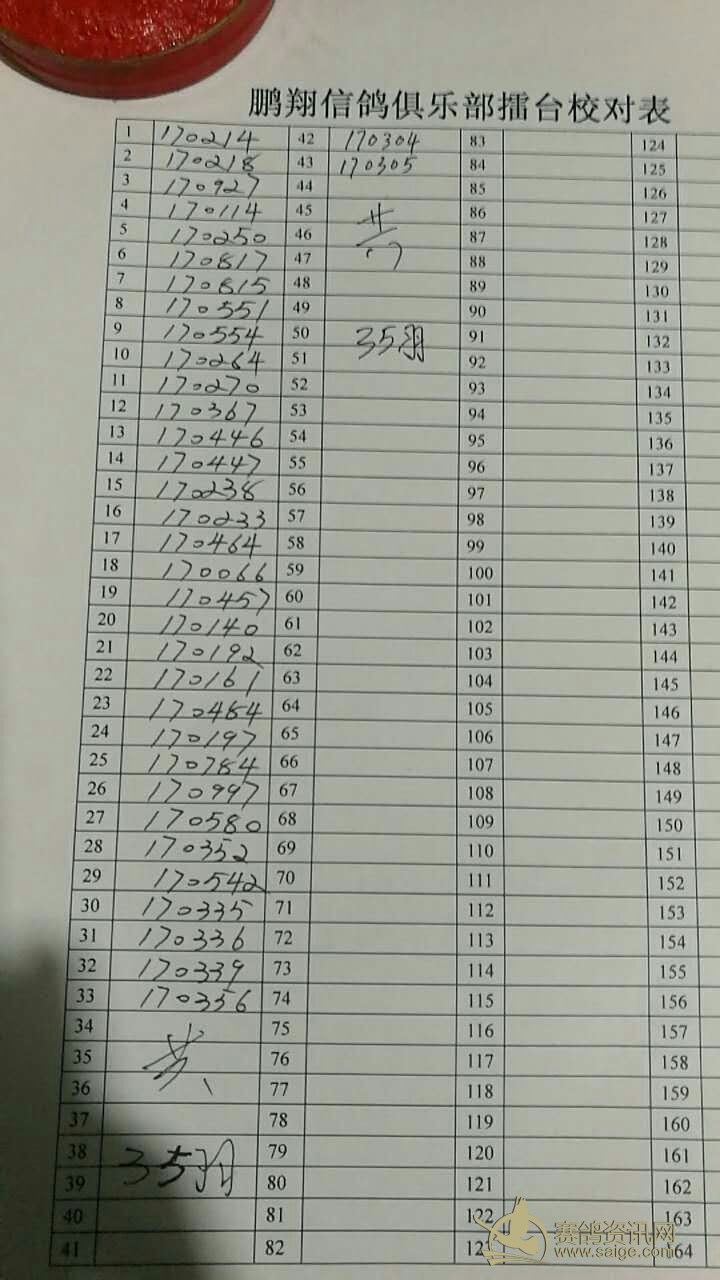 鹏翔信鸽俱乐部擂台校对表
1 170214 42 170304 83 124
2 170218 43 170305 84 125
3 170927 44 85 126
4 170114 45 86 127
5 170250 46 共 87 128
6 170817 47 88 129
7 170815 48 89 130
8 170551 49 90 131
9 170554 50 35羽 91 132
10 170264 51 92 133
11 170270 52 93 134
12 170367 53 94 135
13 170446 54 95 136
14 170447 55 96 137
15 170238 56 97 138
16 170233 57 98 139
17 170464 58 99 140
18 170066 59 100 141
19 170457 60 101 142
20 170140 61 102 143
21 170192 62 103 144
22 170161 63 104 145
23 170484 64 105 146
24 170197 65 106 147
25 170784 66 107 148
26 170997 67 108 149
27 170580 68 109 150
28 170352 69 110 151
29 170542 70 111 152
30 170335 71 112 153
31 170336 72 113 154
32 170339 73 114 155
33 170356 74 115 156
34 75 116 157
35 共 76 117 158
36 77 118 159
37 78 119 160
38 35羽 79 120 161
39 80 121 162
40 81 122 163
41 82 123 164
赛鸽资讯网
www.saige.com